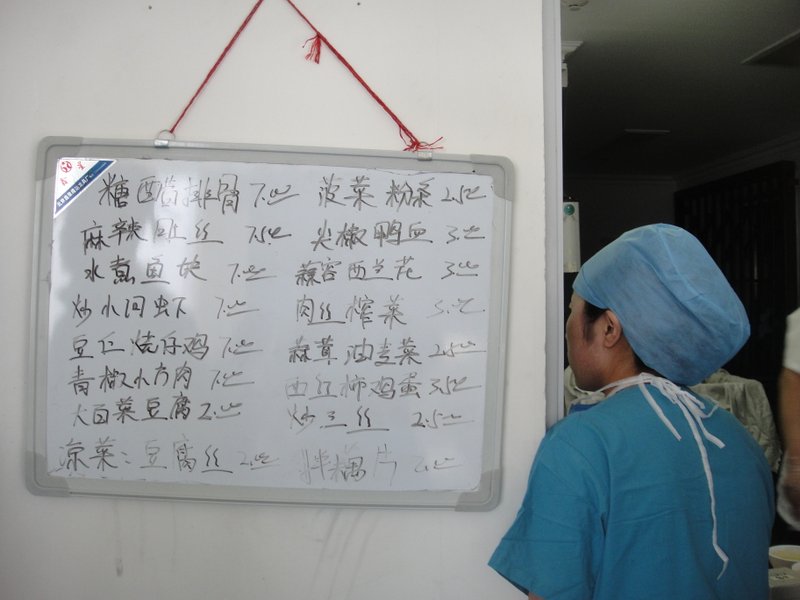 糖醋排骨 7.00 菠菜粉条 2.50
麻辣肉丝 7.50 尖椒鸭血 3.00
水煮鱼块 7.00 蒜容西兰花 3.00
炒小河虾 7.00 肉丝榨菜 3.00
豆仁烧仔鸡 7.00 蒜茸油麦菜 2.50
青椒小方肉 7.00 西红柿鸡蛋 3.50
大白菜豆腐 2.00 炒三丝 2.50
凉菜:豆腐丝 2.00 拌藕片 2.00